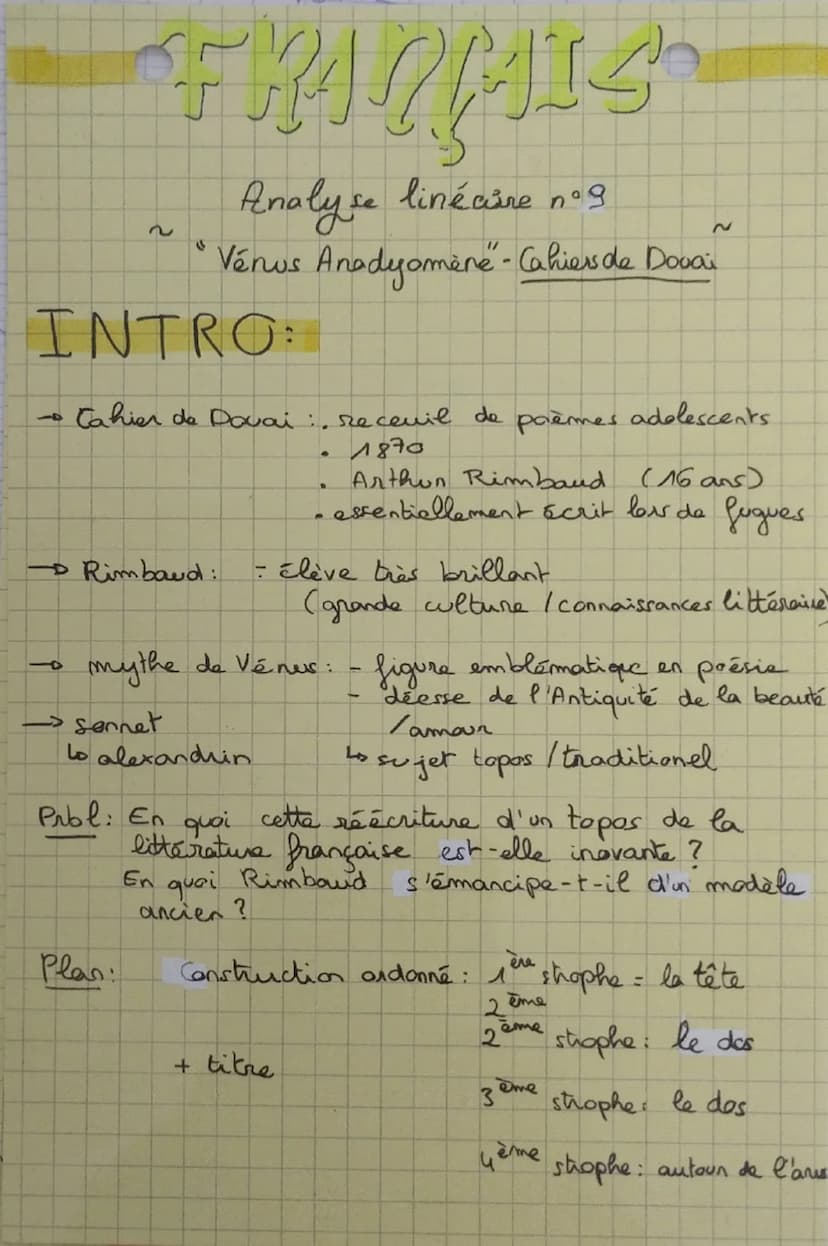 FRANÇAIS
Analyse linéaire n°9
~ "Vénus Anadyomène" - Cahiers de Douai ~
INTRO:
→ Cahier de Douai : . receuil de poèmes adolescents
. 1870
. Arthur Rimbaud (16 ans)
. essentiellement écrit lors de fugues
→ Rimbaud : - élève très brillant
(grande culture / connaissances littéraire)
→ mythe de Vénus : - figure emblématique en poésie
- déesse de l'Antiquité de la beauté
/amour
→ sonnet
↳ alexandrin
↳ sujet topos / traditionel
Prbl : En quoi cette réécriture d'un topos de la
littérature française est-elle inovante ?
En quoi Rimbaud s'émancipe-t-il d'un modèle
ancien ?
Plan : Construction ordonné : 1ère strophe = la tête
2ème
2ème strophe : le dos
+ titre
3ème strophe : le dos
4ème strophe : autour de l'anus